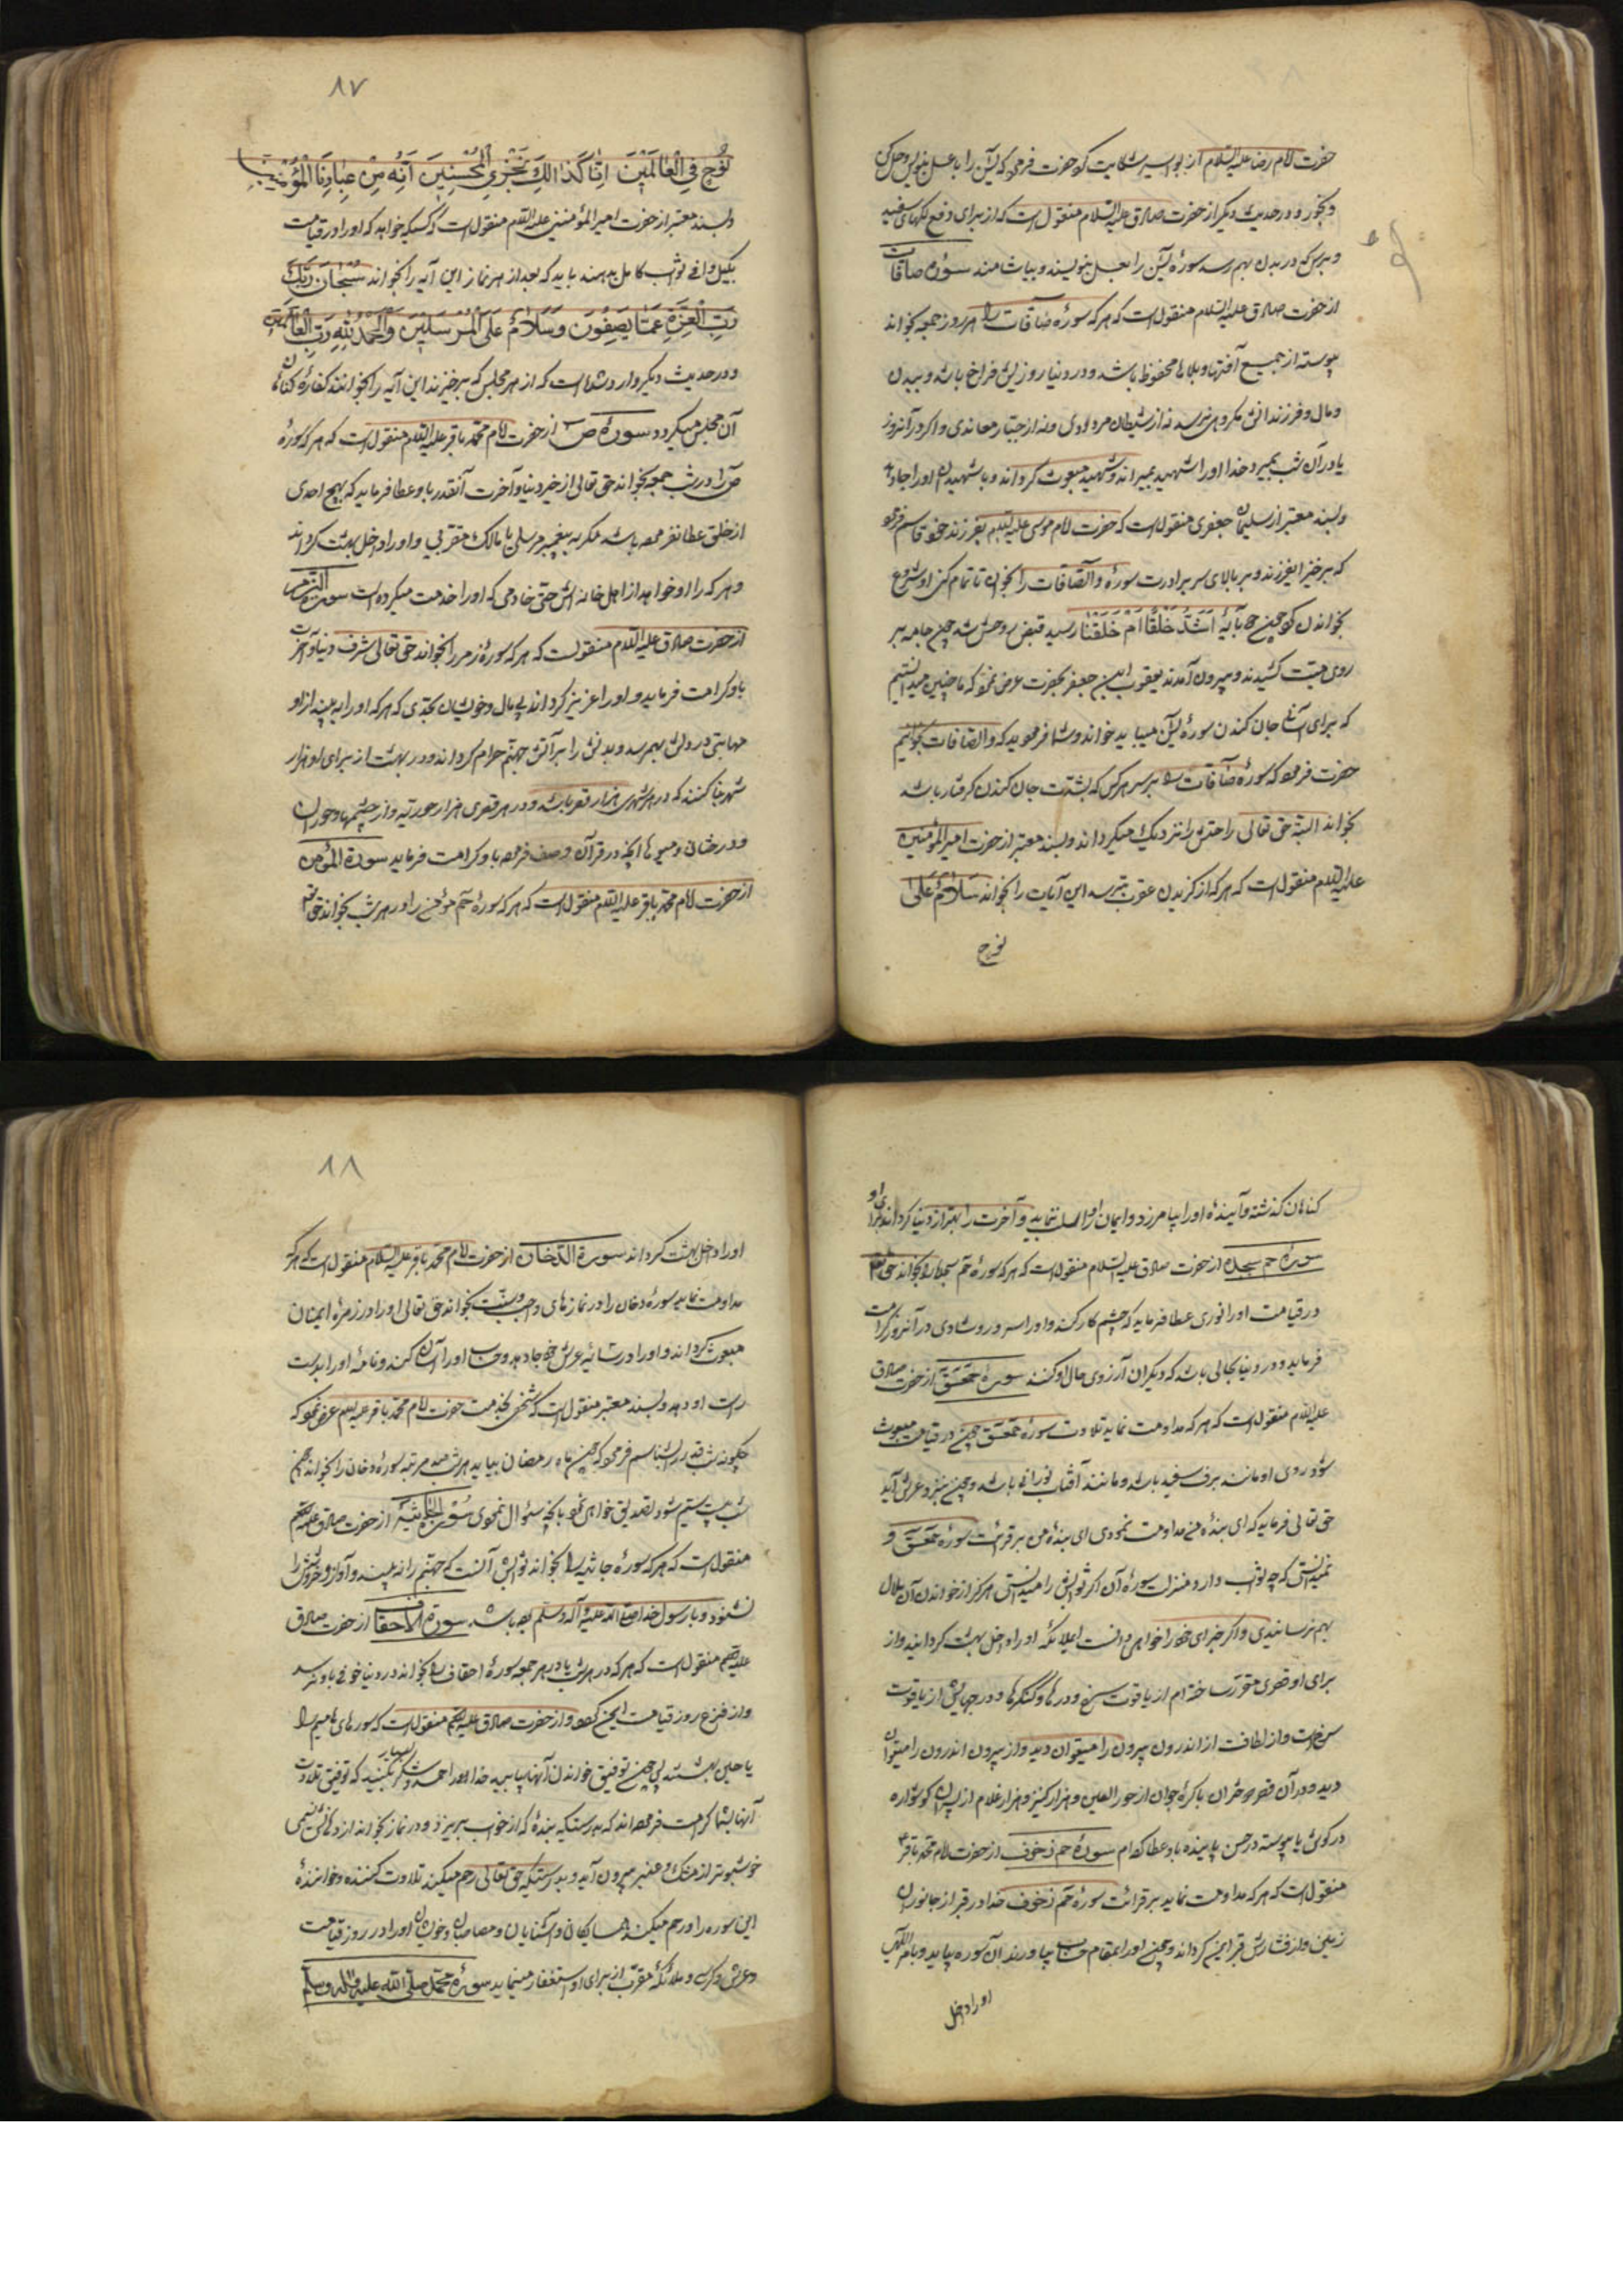 حضرت امام رضا علیه السلام از بواسیر شکایت کرد حضرت فرمود که یس را با عسل بنویس و حل کن
و بخور و در حدیث دیگر از حضرت صادق علیه السلام منقول است که از برای دفع لکهای سفید
و برص که در بدن بهم رسد سورهٔ یس را بعسل بنویسند و بیاشامند سوره صافات
از حضرت صادق علیه السلام منقول است که هر که سورهٔ صافات را هر روز جمعه بخواند
پیوسته از جمیع آفتها و بلاها محفوظ باشد و در دنیا روزیش فراخ باشد و ببدن
و مال و فرزندانش مکروهی نرسد نه از شیطان مردودی و نه از جبار معاندی و اگر در آنروز
یا در آن شب بمیرد خدا او را شهید بمیراند و شهید مبعوث گرداند و با شهیدان او را جا دهد
و بسند معتبر از سلیمان جعفری منقول است که حضرت امام موسی علیه السلم بفرزند خود قاسم فرمود
که برخیز ای فرزند و بر بالای سر برادرت سورهٔ و الصافات را بخوان تا تمام کنی او شروع
بخواندن کرد چون بآیهٔ اَشَدُّ خَلْقًا اَمْ مَنْ خَلَقْنا رسید قبض روحش شد چون جامه بر
روی میت کشیدند و بیرون آمدند یعقوب ابن جعفر بحضرت عرض نمود که ما چنین میدانستیم
که برای آسانی جان کندن سورهٔ یس میباید خواند و شما فرمودید که و الصافات بخوانیم
حضرت فرمود که سورهٔ صافات را بر سر هر کس که بشدت جان کندن گرفتار باشد
بخواند البته حق تعالی راحتش را نزدیک میگرداند و بسند معتبر از حضرت امیرالمؤمنین
علیه السلم منقول است که هر که از گزیدن عقرب ترسد این آیات را بخواند سَلامٌ عَلی
نوح
۸۷
نُوحٍ فِی الْعالَمینَ اِنّا کَذالِکَ نَجْزِی الْمُحْسِنینَ اِنَّهُ مِنْ عِبادِنَا الْمُؤْمِنینَ
و بسند معتبر از حضرت امیر المؤمنین علیه السلم منقول است که کسیکه خواهد که او را در قیامت
بکیل وافی ثواب کامل بدهند باید که بعد از هر نماز این آیه را بخواند سُبْحانَ رَبِّکَ
رَبِّ الْعِزَّةِ عَمّا یَصِفُونَ وَ سَلامٌ عَلَی الْمُرْسَلینَ وَ الْحَمْدُ لِلّهِ رَبِّ الْعالَمینَ
و در حدیث دیگر وارد شده است که از هر مجلس که برخیزند این آیه را بخوانند کفارهٔ گناهان
آن مجلس میگردد سورهٔ ص از حضرت امام محمد باقر علیه السلم منقول است که هر که سورهٔ
ص را در شب جمعه بخواند حق تعالی از خیر دنیا و آخرت آنقدر باو عطا فرماید که بهیچ احدی
از خلق عطا نفرموده باشد مگر به پیغمبر مرسلی یا مالک مقربی و او را داخل بهشت گرداند
و هر که را او خواهد از اهل خانه اش حتی خادمی که او را خدمت میکرده است سوره الزمر
از حضرت صادق علیه السلم منقولست که هر که سورهٔ زمر را بخواند حق تعالی شرف دنیا و آخرت
باو کرامت فرماید و او را عزیز گرداند بی مال و خویشان بحدی که هر که او را به بیند از او
مهابتی در دلش بهم رسد و بدنش را بر آتش جهنم حرام گرداند و در بهشت از برای او هزار
شهر بنا کنند که در هر شهری هزار قصر باشد و در هر قصری هزار حوریه و از چشمها و حوران
و درختان و میوه ها آنچه در قرآن وصف فرموده باو کرامت فرماید سورة المؤمن
از حضرت امام محمد باقر علیه السلم منقول است که هر که سورهٔ حم مؤمن را در هر شب بخواند حق تع
گناهان گذشته و آینده او را بیامرزد و ایمان را از او سلب ننماید و آخرت را بهتر از دنیا گرداند برای او
سورهٔ حم سجده از حضرت صادق علیه السلام منقول است که هر که سورهٔ حم سجده را بخواند حق تع
در قیامت او را نوری عطا فرماید که چشم کار کند و او را سرور و شادی در آنروز کرامت
فرماید و در دنیا بحالی باشد که دیگران آرزوی حال او کنند سورهٔ حمعسق از حضرت صادق
علیه السلم منقول است که هر که مداومت نماید تلاوت سورهٔ حمعسق چون در قیامت مبعوث
شود روی او مانند برف سفید باشد و مانند آفتاب نورانی باشد و چون بنزد عرش آید
حق تعالی فرماید که ای بندهٔ من مداومت نمودی ای بندهٔ من بر قرائت سورهٔ حمعسق و
نمیدانستی که چه ثواب دارد و منزلت سورهٔ آن اگر ثوابش را میدانستی هرگز از خواندن آن ملال
بهم نرسانیدی و اگر جزای خود را خواهی دانست ای ملائکه او را داخل بهشت گردانید و از
برای او قصری مقرر ساخته ام از یاقوت سرخ و درها و کنگرها و درجهایش از یاقوت
سرخست و از لطافت از اندرون بیرون را میتوان دید و از بیرون اندرون را میتوان
دید و در آن قصر دختران باکرهٔ جوان از حور العین و هزار کنیز و هزار غلام از پسران گوشواره
در گوش یا پیوسته در حسن پاینده باو عطا کرده ام سورهٔ حم زخرف از حضرت امام محمد باقر ع
منقول است که هر که مداومت نماید بر قرائت سورهٔ حم زخرف خدا در قبر از جانوران
زمین و از فشارش قبر ایمن گرداند و چون او را بمقام حساب بیاورند آن سوره بیاید و بامر الهی
او را داخل
۸۸
او را داخل بهشت گرداند سورة الدخان از حضرت امام محمد باقر علیه السلام منقول است که هر که
مداومت نماید سورهٔ دخان را در نمازهای واجب و سنت بخواند حق تعالی او را در زمرهٔ ایمنان
مبعوث گرداند و او را در سایهٔ عرش خود جا دهد و حساب او را آسان کند و نامهٔ او را بدست
راست او دهد و بسند معتبر منقول است که شخصی بخدمت حضرت امام محمد باقر علیه السلم عرض نمود که
چگونه شب قدر را بشناسم فرمود که چون ماه رمضان بیاید هر شب صد مرتبه سورهٔ دخان را بخواند چون
شب بیست سیم شود تصدیق خواهی نمود بآنچه سئوال نمودی سورة الجاثیة از حضرت صادق علیه السلم
منقول است که هر که سورهٔ جاثیه را بخواند ثوابش آنست که جهنم را نه بیند و آواز و خروش را
نشنود و با رسول خدا صلی الله علیه و آله وسلم بوده باشد سورة الاحقاف از حضرت صادق
علیه السلم منقول است که هر که در هر شب یا در هر جمعه سورهٔ احقاف را بخواند در دنیا خوفی باو نرسد
و از فزع روز قیامت ایمن گردد و از حضرت صادق علیه السلم منقول است که سوره های حامیم را
ریاحین بهشتند پس چون توفیق خواندن آنها بیابید خدا را حمد و شکر بسیار بکنید که توفیق تلاوت
آنها بشما کرامت فرموده اند که بدرستیکه بندهٔ که از خواب برخیزد و در نماز بخواند از دهانش نسیمی
خوشبوتر از مشک و عنبر بیرون آید و بدرستیکه حق تعالی رحم میکند تلاوت کننده و خوانندهٔ
این سوره را و رحم میکند همسایگان و آشنایان و مصاحبان و خویشان او را در روز قیامت
و عرش و کرسی و ملائکهٔ مقرب از برای او استغفار مینمایند سورهٔ محمد صلی الله علیه و اله وسلم